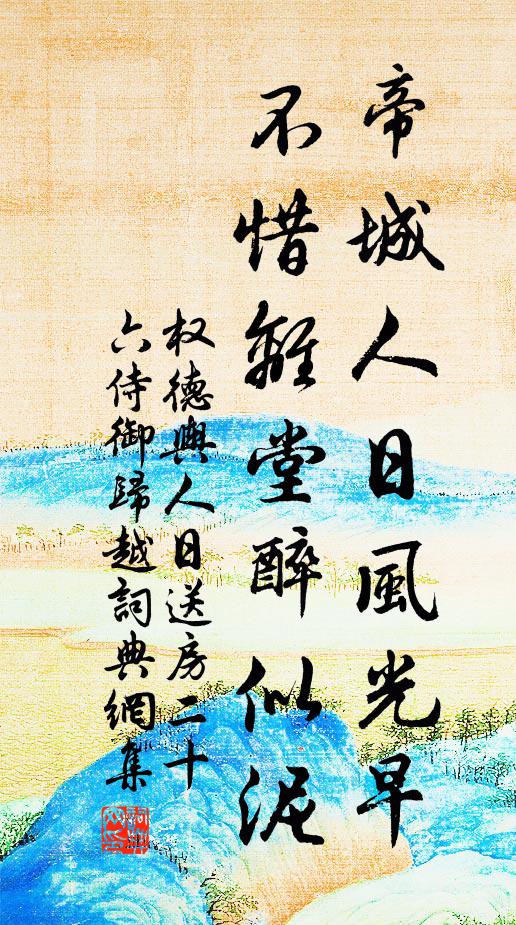 帝城人日風光早
不惜離堂醉似泥
权德輿人日送房二十
六侍御歸越詞典網集